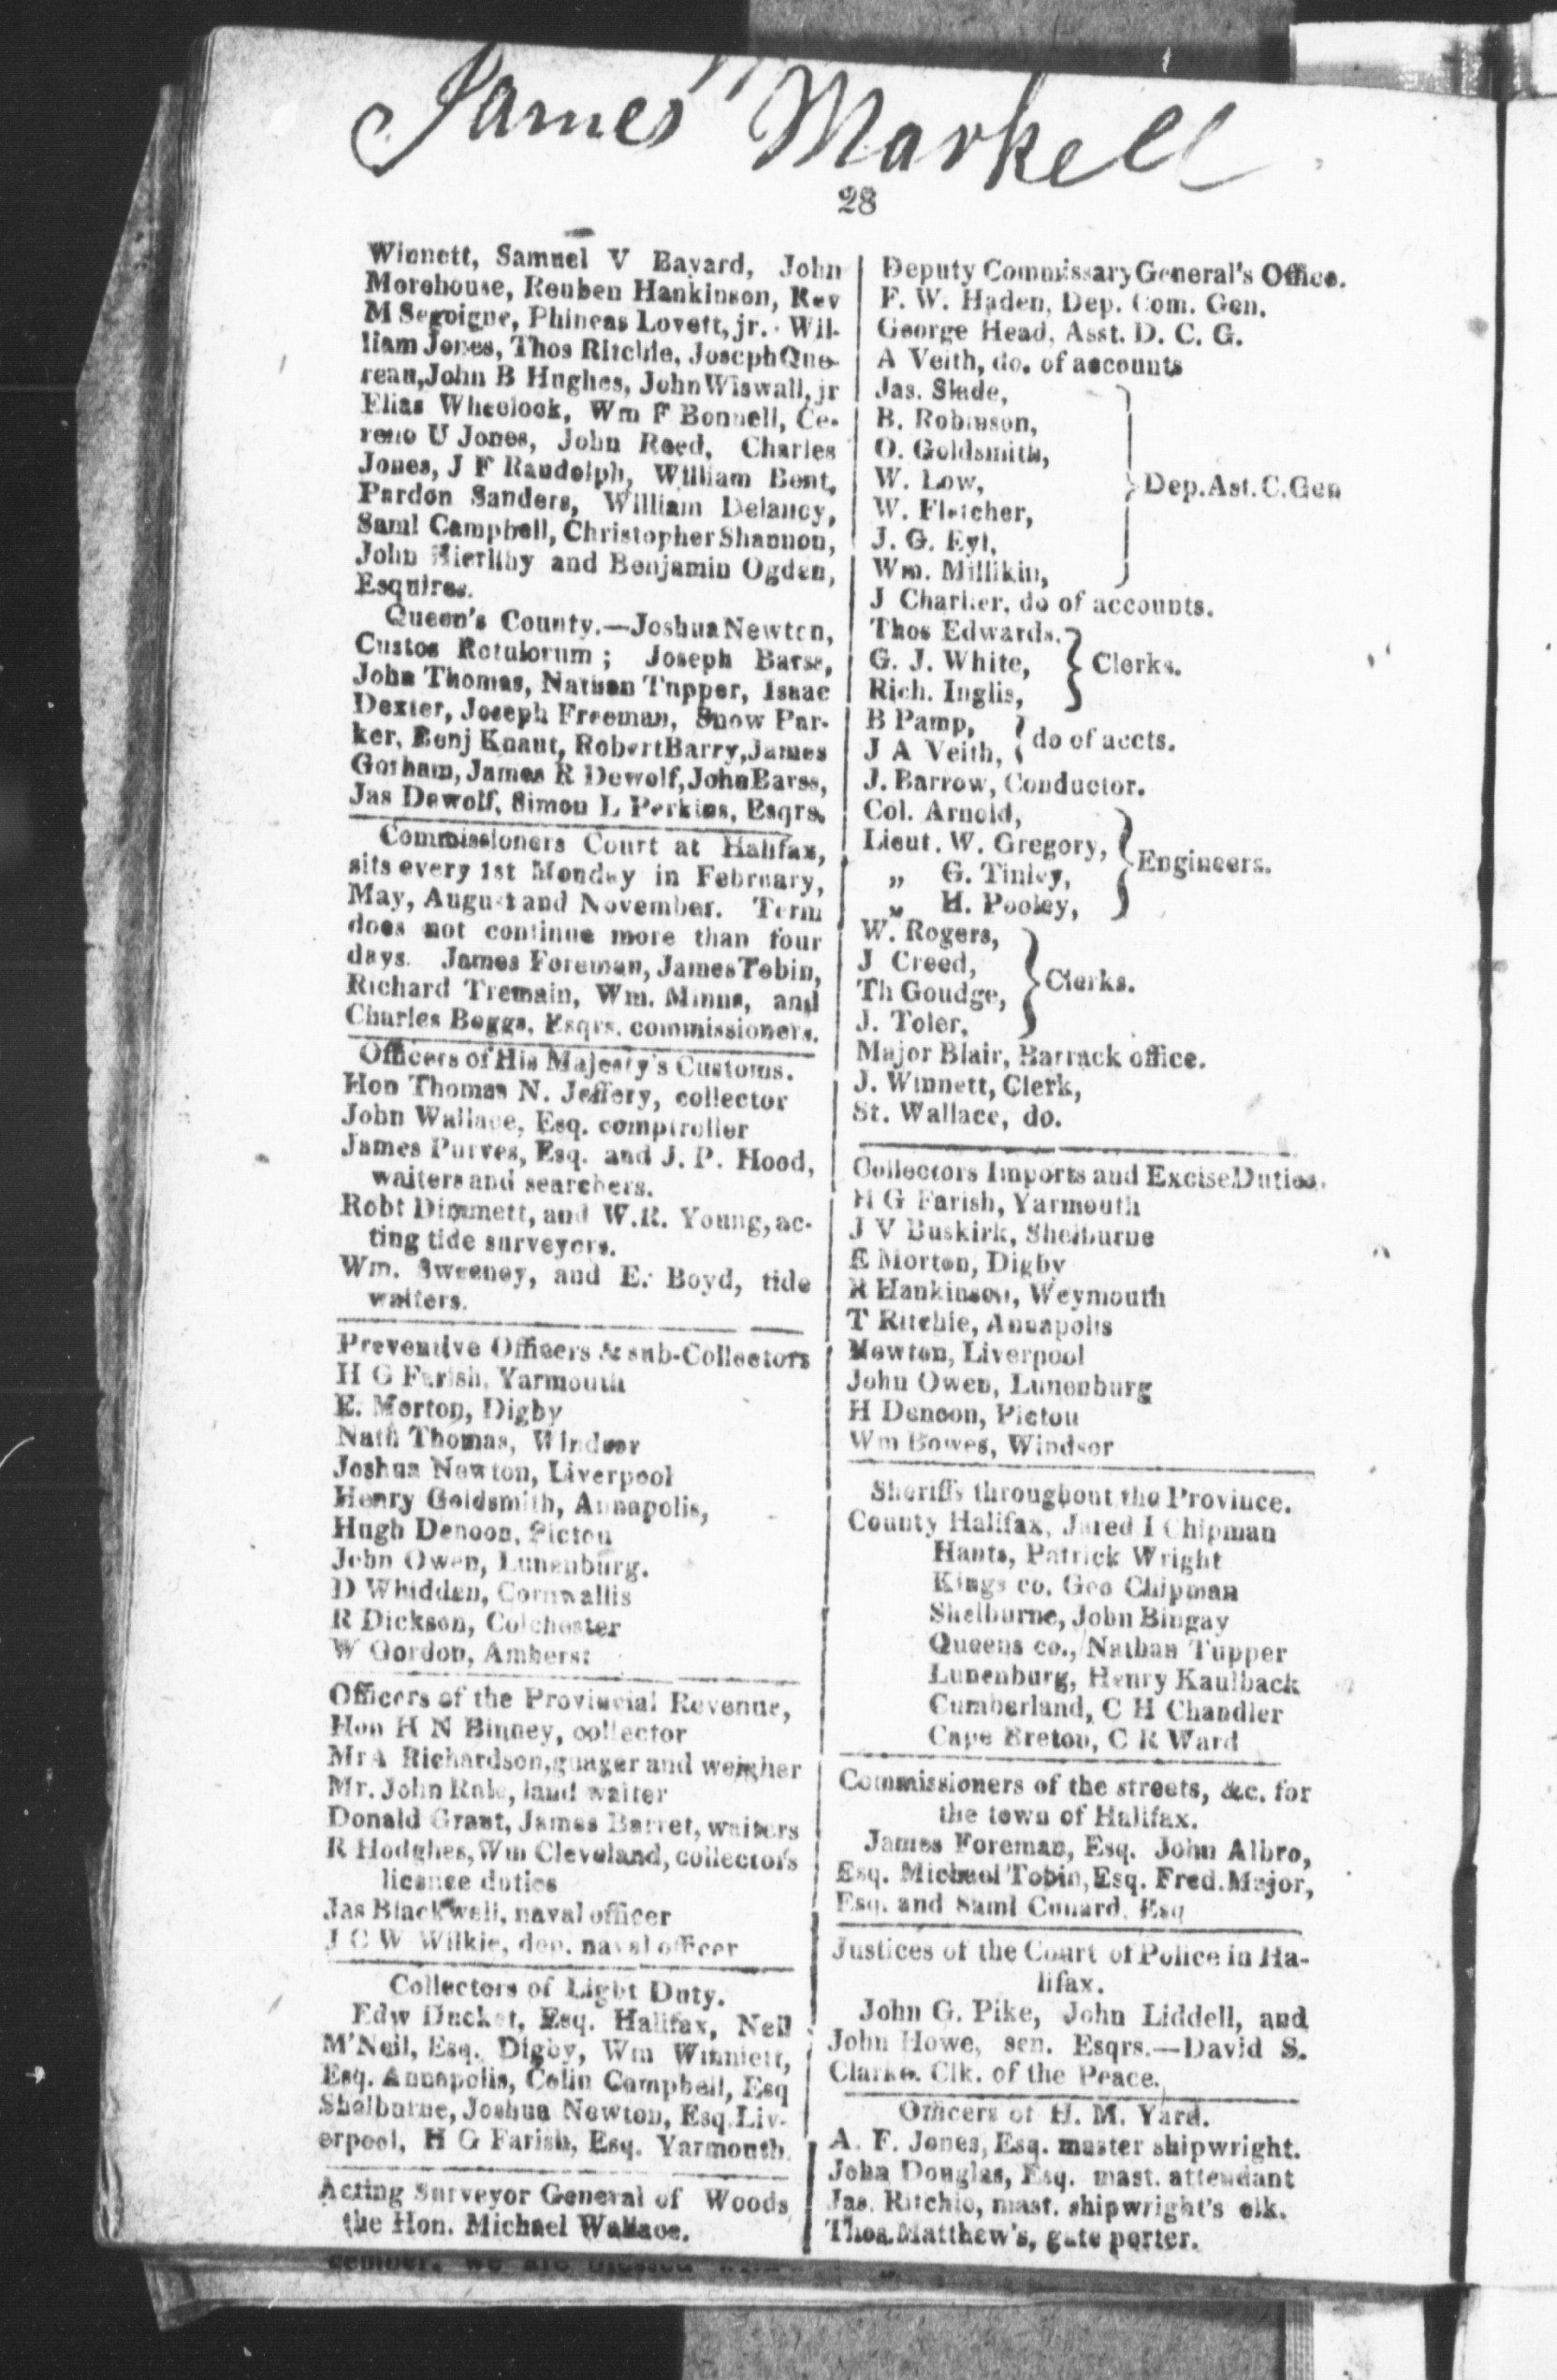 James Markell
28
Winnett, Samuel V Bayard, John
Morehouse, Reuben Hankinson, Rev
M Segoigne, Phineas Lovett, jr. Wil-
liam Jones, Thos Ritchie, Joseph Que-
reau, John B Hughes, John Wiswall, jr
Elias Wheelock, Wm F Bonnell, Ce-
reno U Jones, John Reed, Charles
Jones, J F Randolph, William Bent,
Pardon Sanders, William Delancy,
Saml Campbell, Christopher Shannon,
John Hierlihy and Benjamin Ogden,
Esquires.
Queen's County.—Joshua Newton,
Custos Rotulorum ; Joseph Barss,
John Thomas, Nathan Tupper, Isaac
Dexter, Joseph Freeman, Snow Par-
ker, Benj Knaut, Robert Barry, James
Gorham, James R Dewolf, John Barss,
Jas Dewolf, Simon L Perkins, Esqrs.
Commissioners Court at Halifax,
sits every 1st Monday in February,
May, August and November. Term
does not continue more than four
days. James Foreman, James Tobin,
Richard Tremain, Wm. Minns, and
Charles Boggs, Esqrs. commissioners.
Officers of His Majesty's Customs.
Hon Thomas N. Jeffery, collector
John Wallace, Esq. comptroller
James Purves, Esq. and J. P. Hood,
waiters and searchers.
Robt Dimmett, and W.R. Young, ac-
ting tide surveyors.
Wm. Sweeney, and E. Boyd, tide
waiters.
Preventive Officers & sub-Collectors
H G Farish, Yarmouth
E. Morton, Digby
Nath Thomas, Windsor
Joshua Newton, Liverpool
Henry Goldsmith, Annapolis,
Hugh Denoon, Pictou
John Owen, Lunenburg.
D Whidden, Cornwallis
R Dickson, Colchester
W Gordon, Amherst
Officers of the Provincial Revenue,
Hon H N Binney, collector
Mr A Richardson, guager and weigher
Mr. John Rule, land waiter
Donald Grant, James Barret, waiters
R Hodghes, Wm Cleveland, collectors
licence duties
Jas Blackwell, naval officer
J C W Wilkie, dep. naval officer
Collectors of Light Duty.
Edw Ducket, Esq. Halifax, Neil
M'Neil, Esq. Digby, Wm Winniett,
Esq. Annapolis, Colin Campbell, Esq
Shelburne, Joshua Newton, Esq. Liv-
erpool, H G Farish, Esq. Yarmouth.
Acting Surveyor General of Woods
the Hon. Michael Wallace.
Deputy Commissary General's Office.
F. W. Haden, Dep. Com. Gen.
George Head, Asst. D. C. G.
A Veith, do. of accounts
Jas. Slade,
B. Robinson,
O. Goldsmith,
W. Low,
Dep. Ast. C. Gen
W. Fletcher,
J. G. Eyl,
Wm. Millikin,
J Charlier, do of accounts.
Thos Edwards,
G. J. White, Clerks.
Rich. Inglis,
B Pamp,
J A Veith, do of accts.
J. Barrow, Conductor.
Col. Arnold,
Lieut. W. Gregory, Engineers.
„ G. Tinley,
„ H. Pooley,
W. Rogers,
J Creed,
Th Goudge, Clerks.
J. Toler,
Major Blair, Barrack office.
J. Winnett, Clerk,
St. Wallace, do.
Collectors Imports and Excise Duties.
H G Farish, Yarmouth
J V Buskirk, Shelburne
E Morton, Digby
R Hankinson, Weymouth
T Ritchie, Annapolis
Newton, Liverpool
John Owen, Lunenburg
H Denoon, Pictou
Wm Bowes, Windsor
Sheriffs throughout the Province.
County Halifax, Jared I Chipman
Hants, Patrick Wright
Kings co. Geo Chipman
Shelburne, John Bingay
Queens co., Nathan Tupper
Lunenburg, Henry Kaulback
Cumberland, C H Chandler
Cape Breton, C R Ward
Commissioners of the streets, &c. for
the town of Halifax.
James Foreman, Esq. John Albro,
Esq. Michael Tobin, Esq. Fred. Major,
Esq. and Saml Cunard, Esq
Justices of the Court of Police in Ha-
lifax.
John G. Pike, John Liddell, and
John Howe, sen. Esqrs.—David S.
Clarke. Clk. of the Peace.
Officers of H. M. Yard.
A. F. Jones, Esq. master shipwright.
John Douglas, Esq. mast. attendant
Jas. Ritchie, mast. shipwright's clk.
Thos. Matthew's, gate porter.